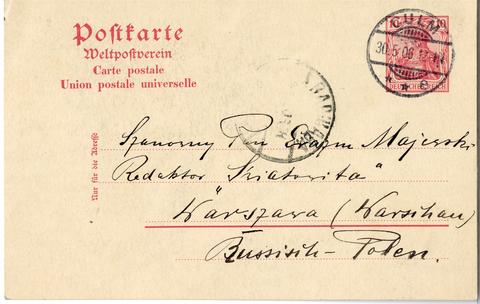 Postkarte
Weltpostverein
Carte postale
Union postale universelle
CULM
30.5.06
10
DEUTSCHES REICH
Nur für die Adresse
Szanowny Pan Erazm Majewski
Redaktor „Światowita"
Warszawa (Warschau)
Russisch-Polen.